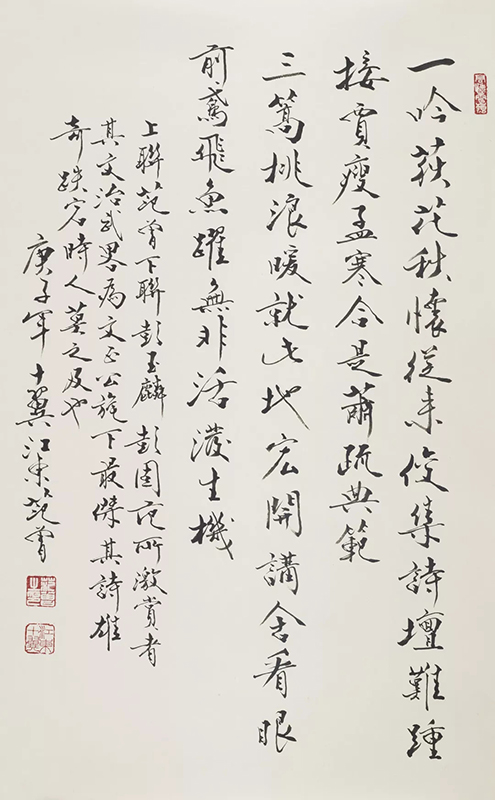 一吟荻花秋懷從来俊集詩壇難踵
接賈瘦孟寒合是蕭疏典範
三篙桃浪暖就此地宏開講舍看眼
前鳶飛魚躍無非活潑生機
上聯范曾下聯彭玉麟彭固范所激賞者
其文治武畧為文正公旄下最傑其詩雄
奇跌宕時人莫之及也
庚子年十翼江東范曾